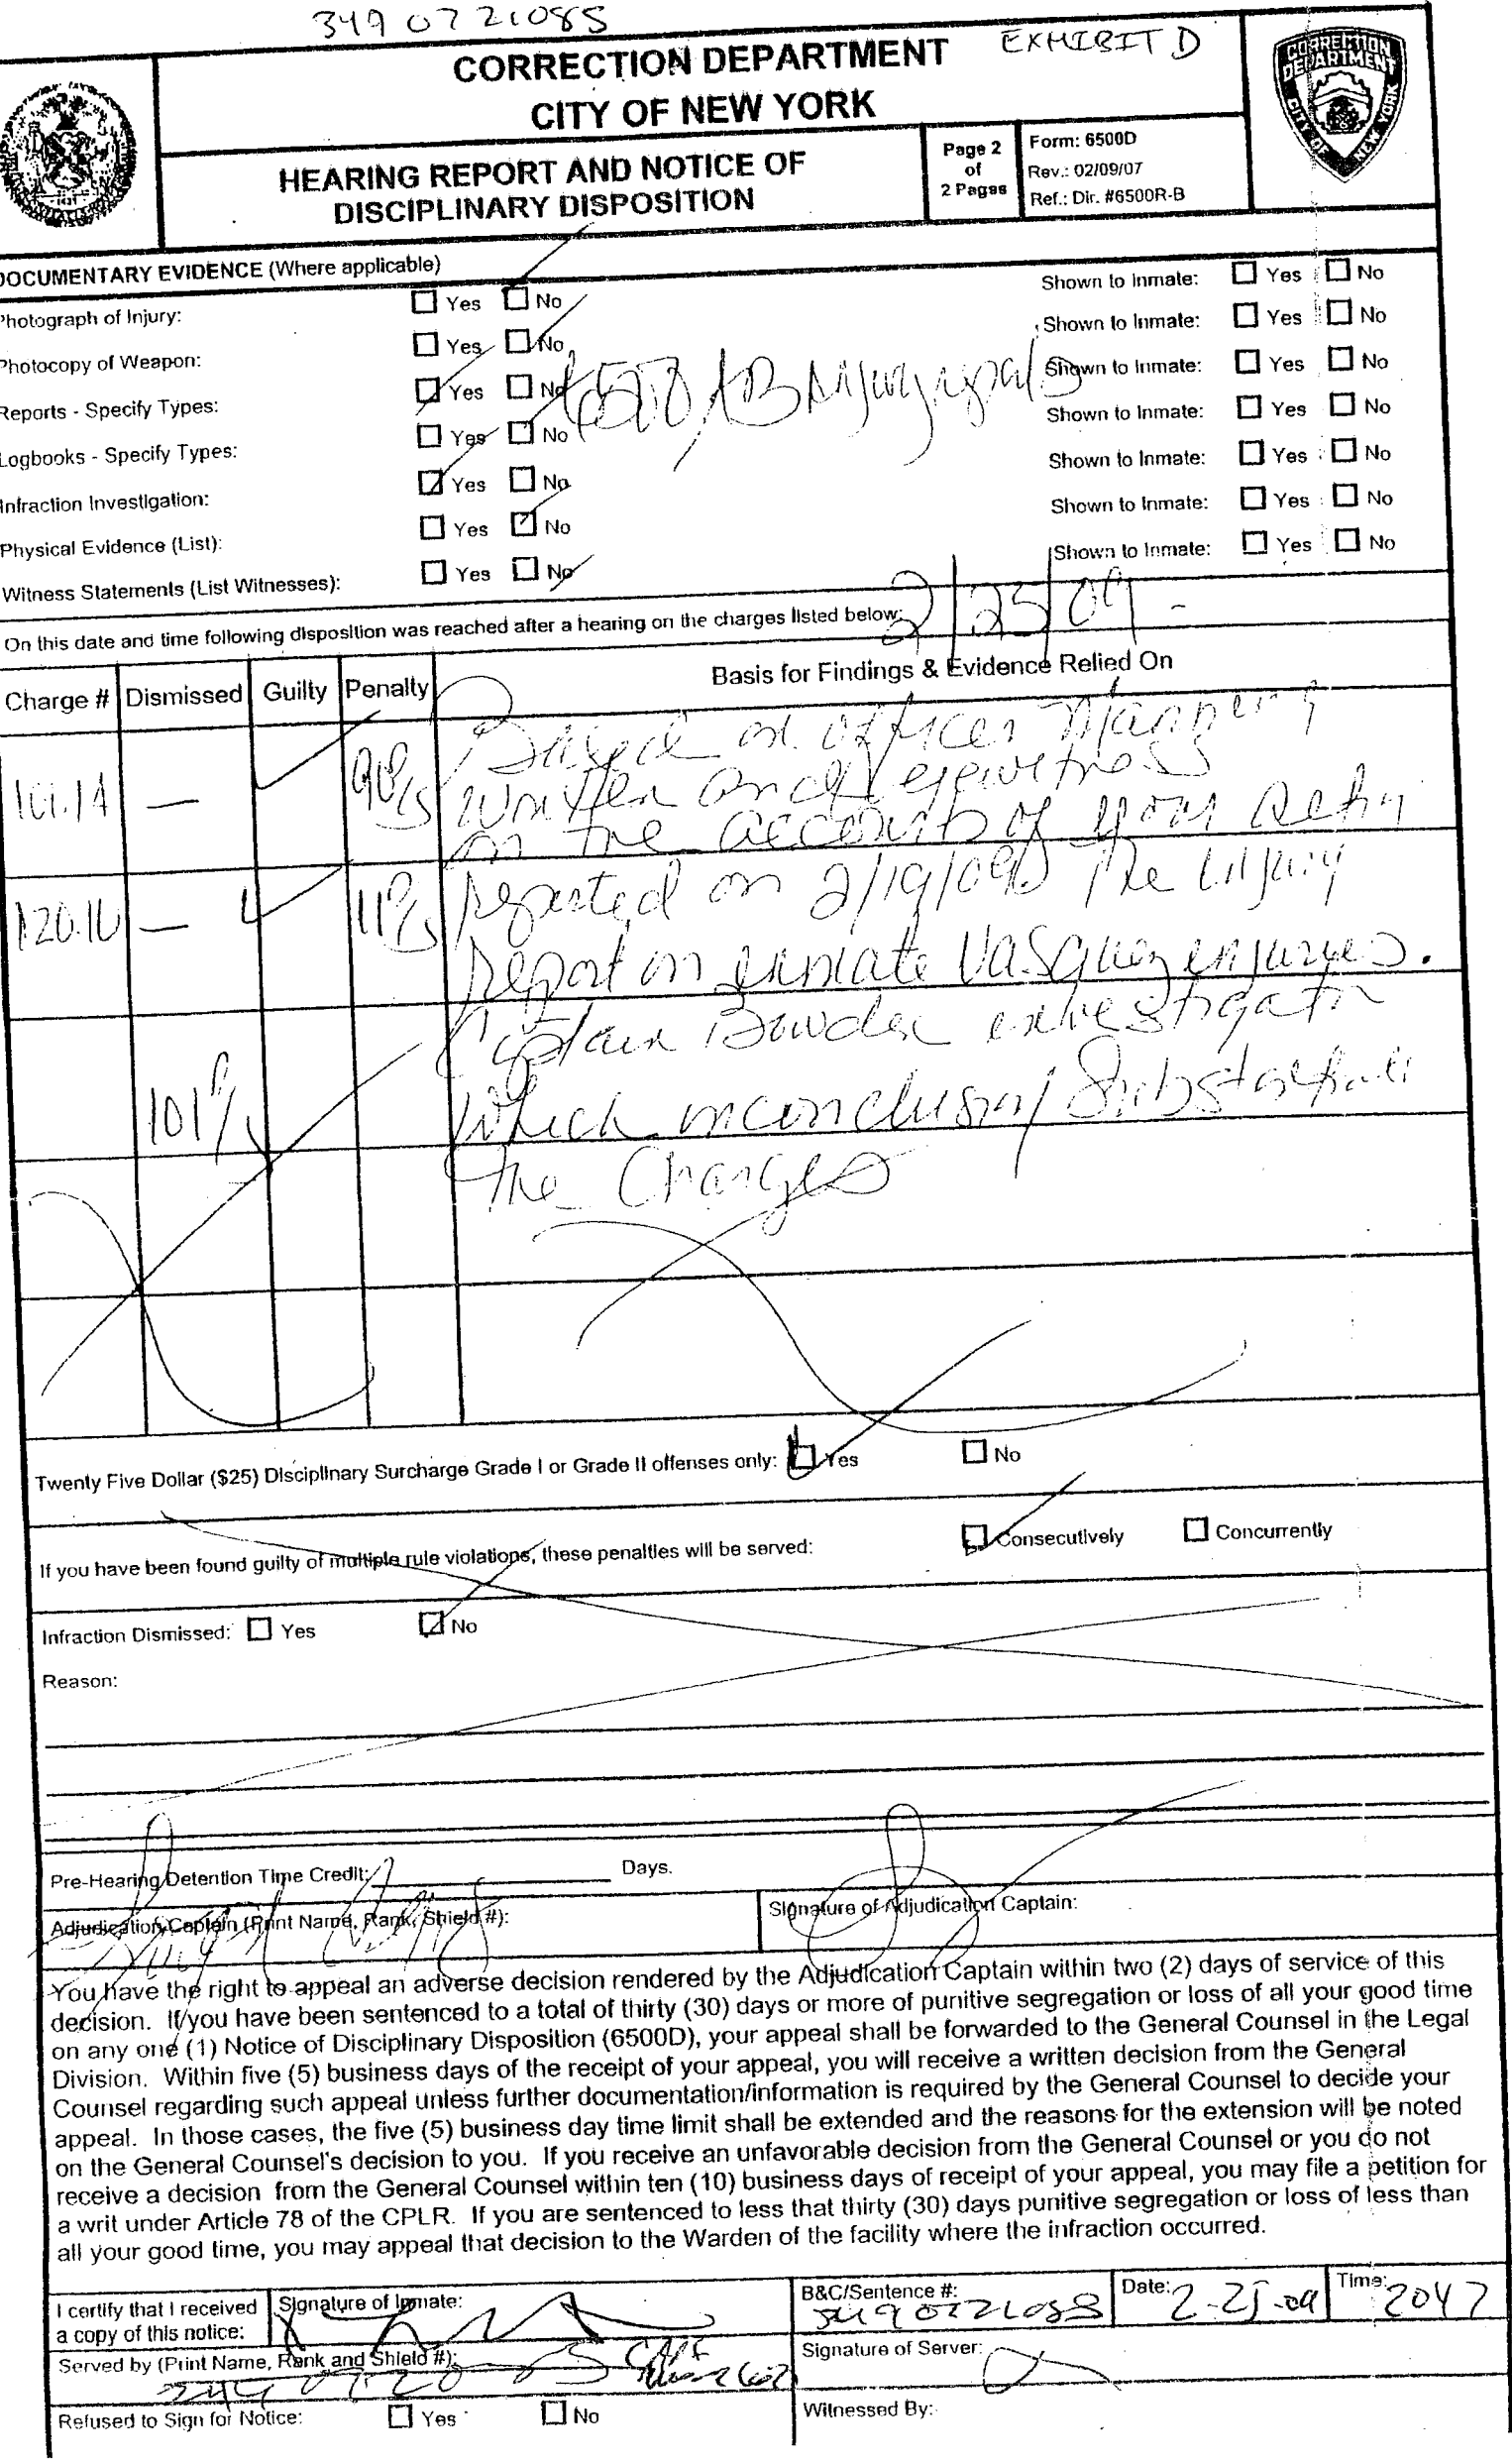 349 07 21085
EXHIBIT D
CORRECTION DEPARTMENT
CITY OF NEW YORK
CORRECTION
DEPARTMENT
CITY OF
NEW YORK
HEARING REPORT AND NOTICE OF
DISCIPLINARY DISPOSITION
Page 2
of
2 Pages
Form: 6500D
Rev.: 02/09/07
Ref.: Dir. #6500R-B
DOCUMENTARY EVIDENCE (Where applicable)
Photograph of Injury: Yes No Shown to Inmate: Yes No
Photocopy of Weapon: Yes No Shown to Inmate: Yes No
Reports - Specify Types: Yes No Shown to Inmate: Yes No
Logbooks - Specify Types: Yes No Shown to Inmate: Yes No
Infraction Investigation: Yes No Shown to Inmate: Yes No
Physical Evidence (List): Yes No Shown to Inmate: Yes No
Witness Statements (List Witnesses): Yes No Shown to Inmate: Yes No
On this date and time following disposition was reached after a hearing on the charges listed below: 2/25/09
Charge # Dismissed Guilty Penalty Basis for Findings & Evidence Relied On
Based on officer
101.14 — written and eyewitness
on the accounts of your
120.16 — reported on 2/19/09 The injury
report on inmate Vasquez injuries.
Captain
which
the Charges
Twenty Five Dollar ($25) Disciplinary Surcharge Grade I or Grade II offenses only: Yes No
If you have been found guilty of multiple rule violations, these penalties will be served: Consecutively Concurrently
Infraction Dismissed: Yes No
Reason:
Pre-Hearing Detention Time Credit: Days.
Adjudication Captain (Print Name, Rank, Shield #):
Signature of Adjudication Captain:
You have the right to appeal an adverse decision rendered by the Adjudication Captain within two (2) days of service of this
decision. If you have been sentenced to a total of thirty (30) days or more of punitive segregation or loss of all your good time
on any one (1) Notice of Disciplinary Disposition (6500D), your appeal shall be forwarded to the General Counsel in the Legal
Division. Within five (5) business days of the receipt of your appeal, you will receive a written decision from the General
Counsel regarding such appeal unless further documentation/information is required by the General Counsel to decide your
appeal. In those cases, the five (5) business day time limit shall be extended and the reasons for the extension will be noted
on the General Counsel's decision to you. If you receive an unfavorable decision from the General Counsel or you do not
receive a decision from the General Counsel within ten (10) business days of receipt of your appeal, you may file a petition for
a writ under Article 78 of the CPLR. If you are sentenced to less that thirty (30) days punitive segregation or loss of less than
all your good time, you may appeal that decision to the Warden of the facility where the infraction occurred.
I certify that I received
a copy of this notice:
Signature of Inmate:
B&C/Sentence #:
Date: 2-25-09
Time: 2047
Served by (Print Name, Rank and Shield #):
Signature of Server:
Refused to Sign for Notice: Yes No
Witnessed By: